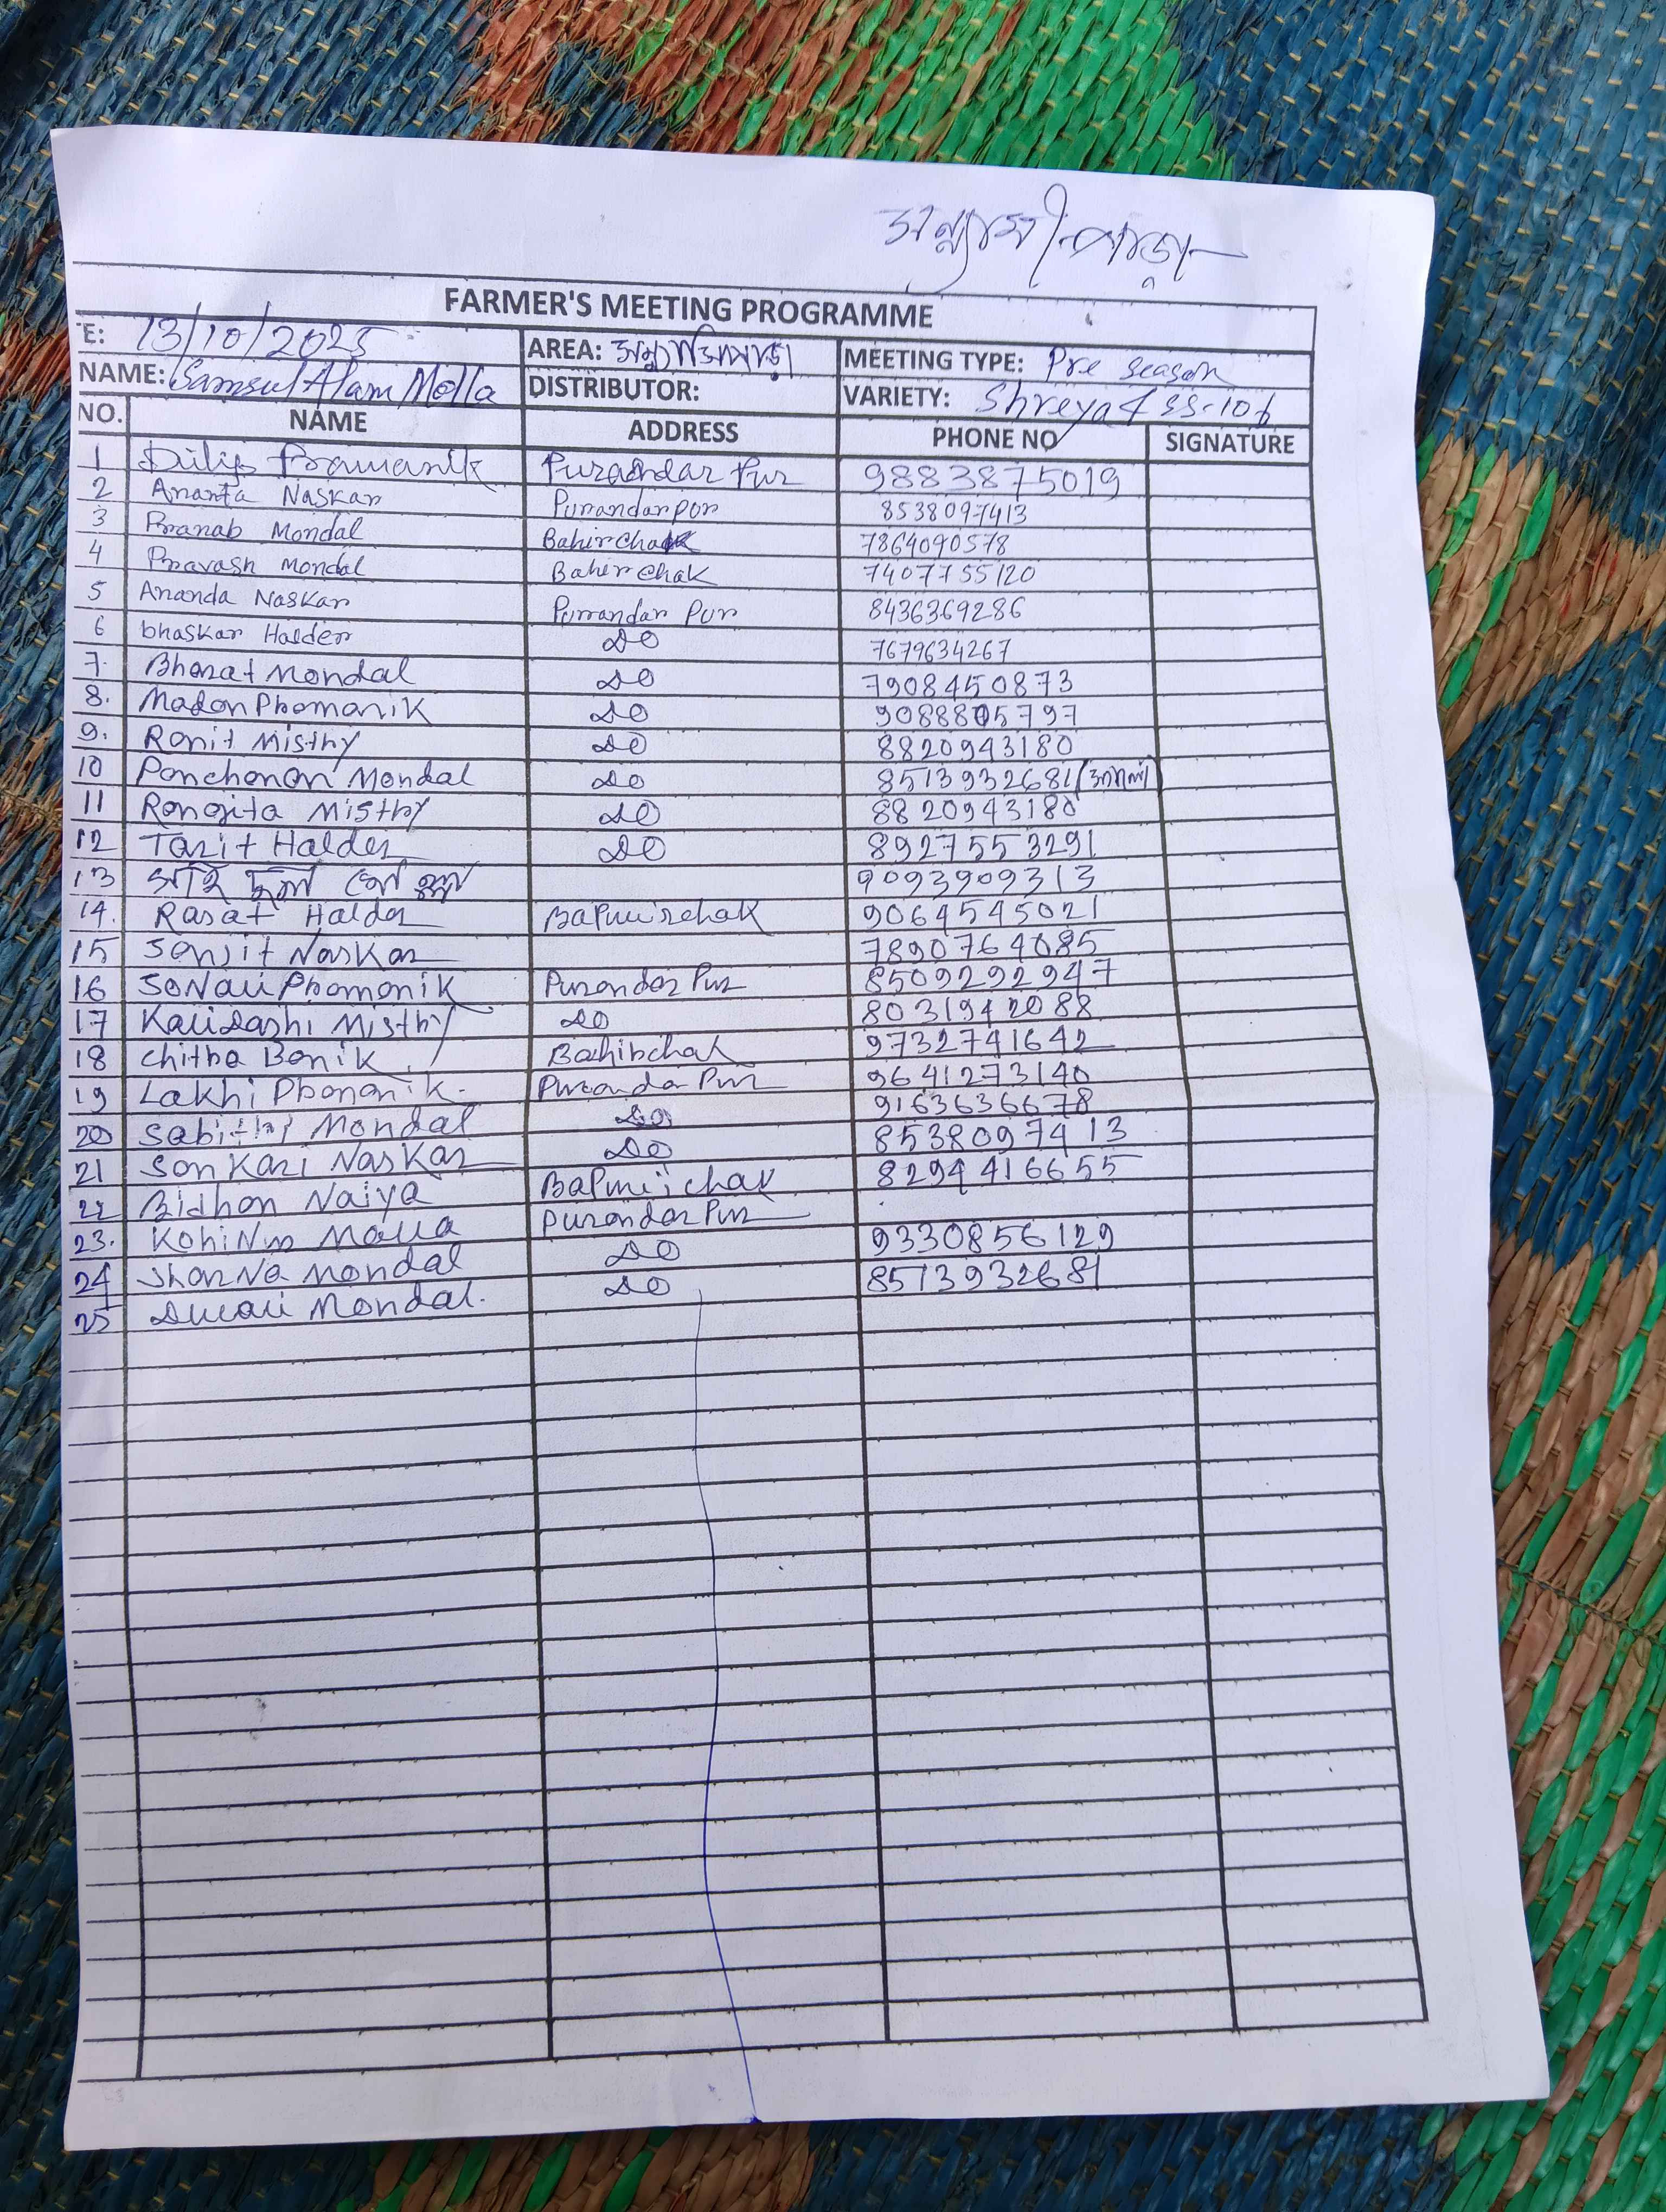 সন্ন্যাসী পাড়া
FARMER'S MEETING PROGRAMME
E: 13/10/2025 AREA: MEETING TYPE: Pre season
NAME: Samsul Alam Molla DISTRIBUTOR: VARIETY: Shreya & SS-106
NO. NAME ADDRESS PHONE NO SIGNATURE
1 Dilip Pramanik Purandar Pur 9883875019
2 Ananta Naskar Purandarpor 8538097413
3 Pranab Mondal Bahirchak 7864090578
4 Pravash Mondal Bahirchak 7407755120
5 Ananda Naskar Purrandar Pur 8436369286
6 bhaskar Halder DO 7679634267
7. Bharat Mondal DO 7908450873
8. Madon Phomanik DO 9088805797
9. Ronit Misthy DO 8820943180
10 Ponchonon Mondal DO 8513932681
11 Rongita Misthy DO 8820943180
12 Tarit Halder DO 8927553291
13 9093909313
14. Rasat Halder 9064545021
15 Sonjit Naskar 7890764085
16 Sonali Phomonik Purondar Pur 8509292947
17 Kalidashi Misthy DO 8031942088
18 Chitha Bonik Bahihchak 9732741642
19 Lakhi Phomonik. Purondar Pur 9641273140
20 Sabithy Mondal DO 9163636678
21 Sonkari Naskar DO 8538097413
22 Bidhon Naiya 8294416655
23. Kohinur Molla Purondar Pur
24 Jhorna Mondal DO 9330856129
25 Dulali Mondal. DO 8513932681